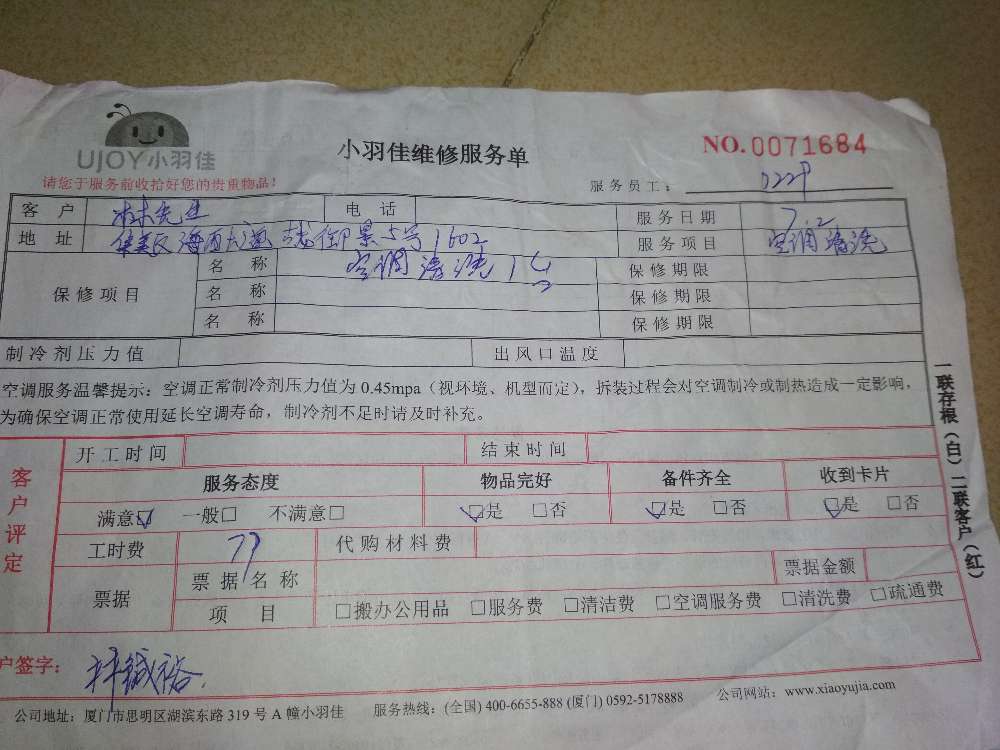 UJOY小羽佳
小羽佳维修服务单
NO.0071684
请您于服务前收拾好您的贵重物品!
服务员工:
客户 林先生 电话 服务日期 7.2
地址 5号1602 服务项目 空调清洗
保修项目 名称 空调清洗1台 保修期限
名称 保修期限
名称 保修期限
制冷剂压力值 出风口温度
空调服务温馨提示:空调正常制冷剂压力值为0.45mpa(视环境、机型而定),拆装过程会对空调制冷或制热造成一定影响,
为确保空调正常使用延长空调寿命,制冷剂不足时请及时补充。
客户评定
开工时间 结束时间
服务态度 物品完好 备件齐全 收到卡片
满意☑ 一般□ 不满意□ ☑是 □否 ☑是 □否 ☑是 □否
工时费 79 代购材料费
票据 票据名称 票据金额
项目 □搬办公用品 □服务费 □清洁费 □空调服务费 □清洗费 □疏通费
户签字:
公司地址:厦门市思明区湖滨东路319号A幢小羽佳 服务热线:(全国)400-6655-888(厦门)0592-5178888 公司网站:www.xiaoyujia.com
一联存根(白)二联客户(红)